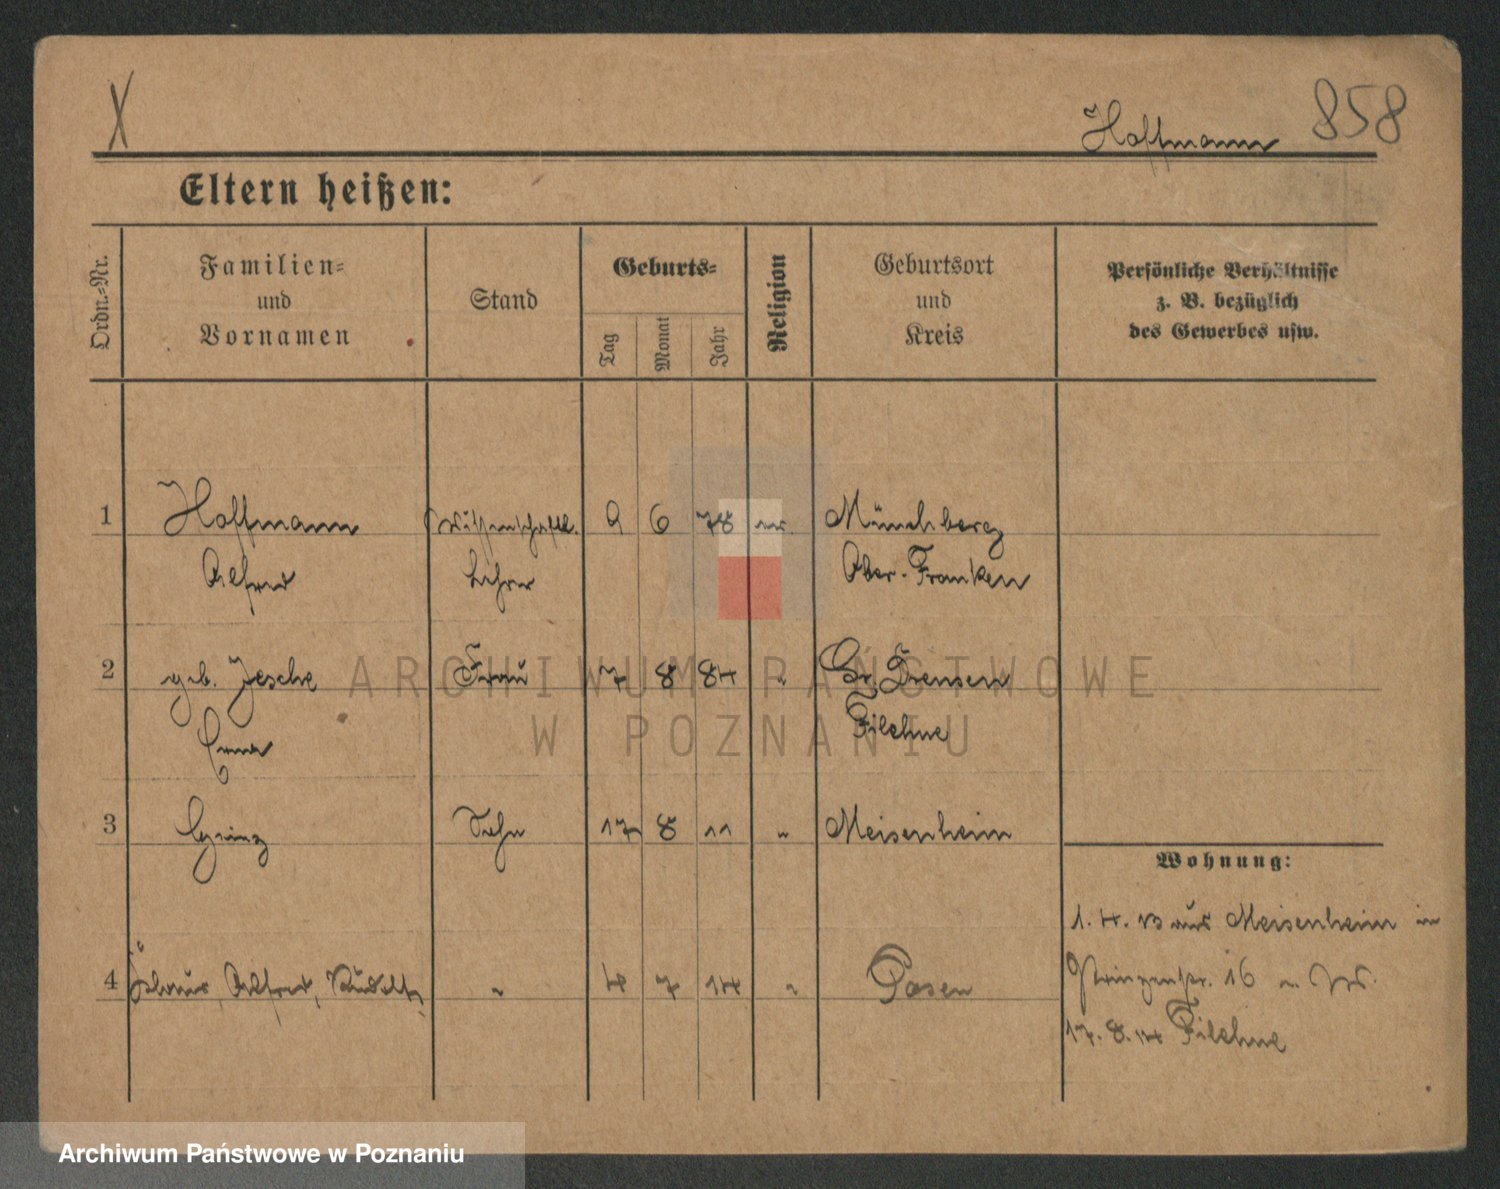 X
Hoffmann 858
Eltern heißen:
Ordn.-Nr.
Familien-
und
Vornamen
Stand
Geburts-
Tag
Monat
Jahr
Religion
Geburtsort
und
Kreis
Persönliche Verhältnisse
z. B. bezüglich
des Gewerbes usw.
1 Hoffmann Wissenschaftl. 9 6 78 ev. Münchberg
Alfred Lehrer Ober-Franken
2 geb. Jesche Frau 7 8 84 " Gr. Drensen
Erna Filehne
3 Heinz Sohn 17 8 11 " Meisenheim
4 Alfred, Rudolf " 4 7 14 " Posen
Wohnung:
1.4.13 aus Meisenheim in
Prinzenstr. 16
17.8.14 Filehne
ARCHIWUM PAŃSTWOWE
W POZNANIU
Archiwum Państwowe w Poznaniu